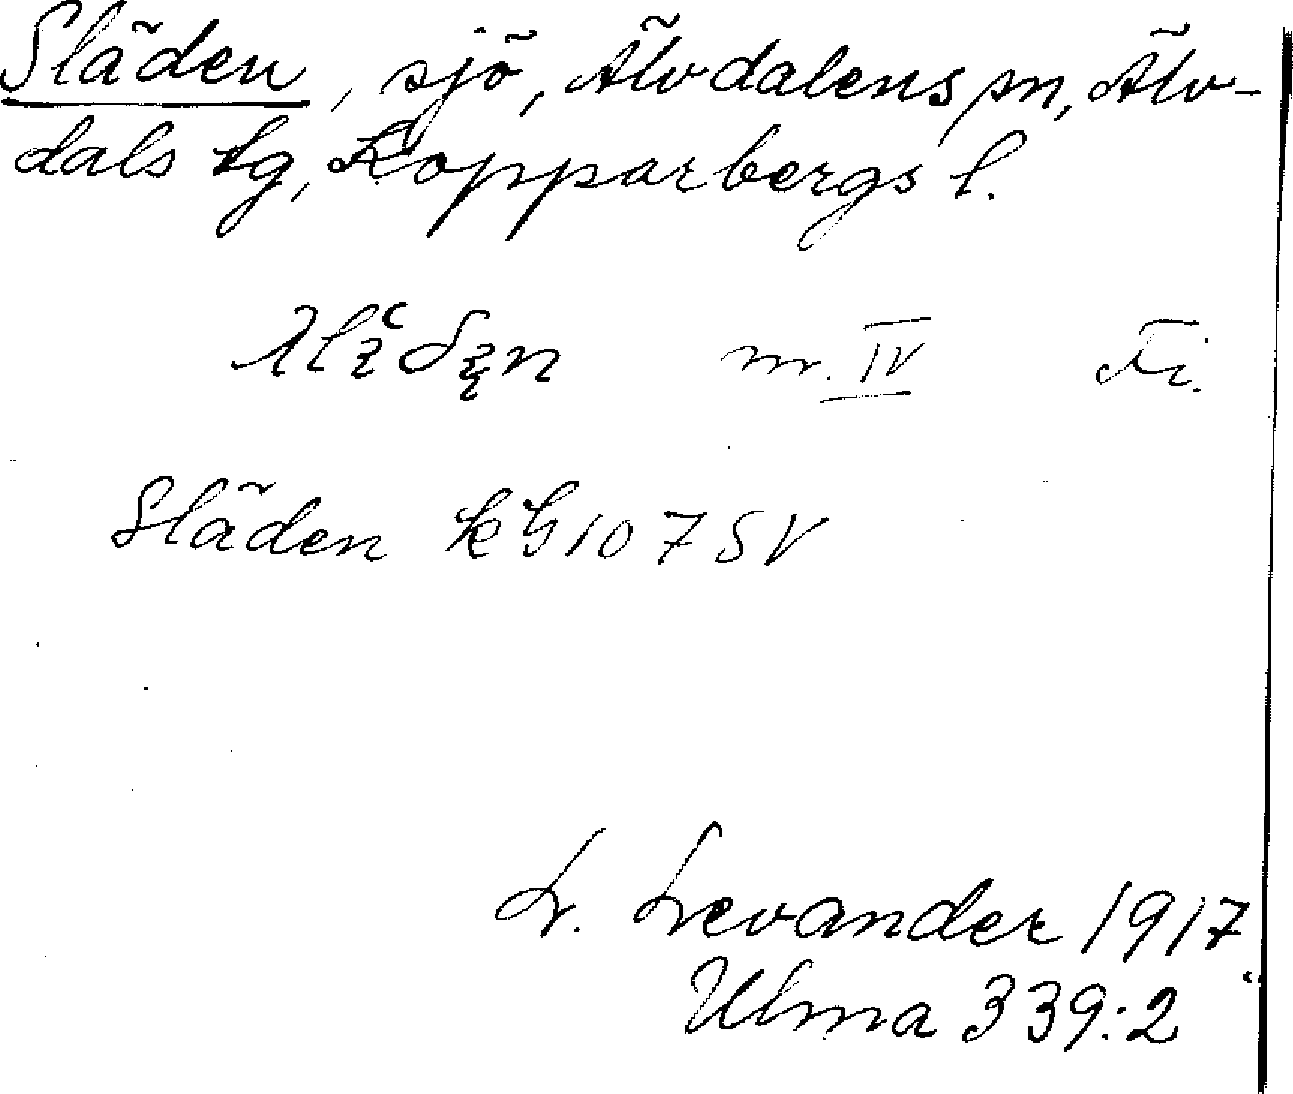 Släden, sjö, Älvdalens sn, Älv-
dals tg, Kopparbergs l.
m. IV Fi.
Släden kbl 107 SV
L. Levander 1917
Ulma 339:2